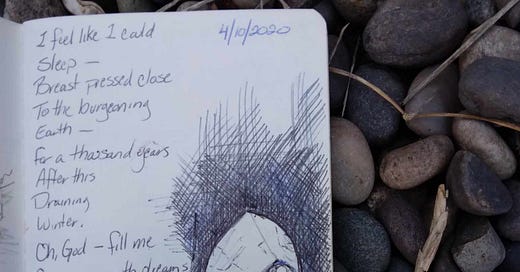 4/10/2020
I feel like I could
Sleep —
Breast pressed close
To the burgeoning
Earth —
For a thousand years
After this
Draining
Winter.
Oh, God — fill me
with dreams